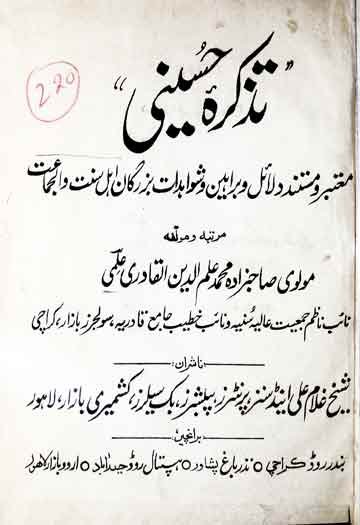 220
"تذکرۂ حسینی"
معتبر و مستند دلائل و براہین و شواہدات بزرگان اہل سنت والجماعت
مرتبہ و مولفہ
مولوی صاحبزادہ محمد علم الدین القادری علمی
نائب ناظم جمعیت عالیہ سُنیہ و نائب خطیب جامع قادریہ، سولجر بازار، کراچی
ناشران:
شیخ غلام علی اینڈ سنز، پرنٹرز، پبلشرز، بک سیلرز، کشمیری بازار، لاہور
برانچیں:
بندر روڈ کراچی ○ نذر باغ پشاور ○ ہسپتال روڈ حیدرآباد ○ اردو بازار لاہور